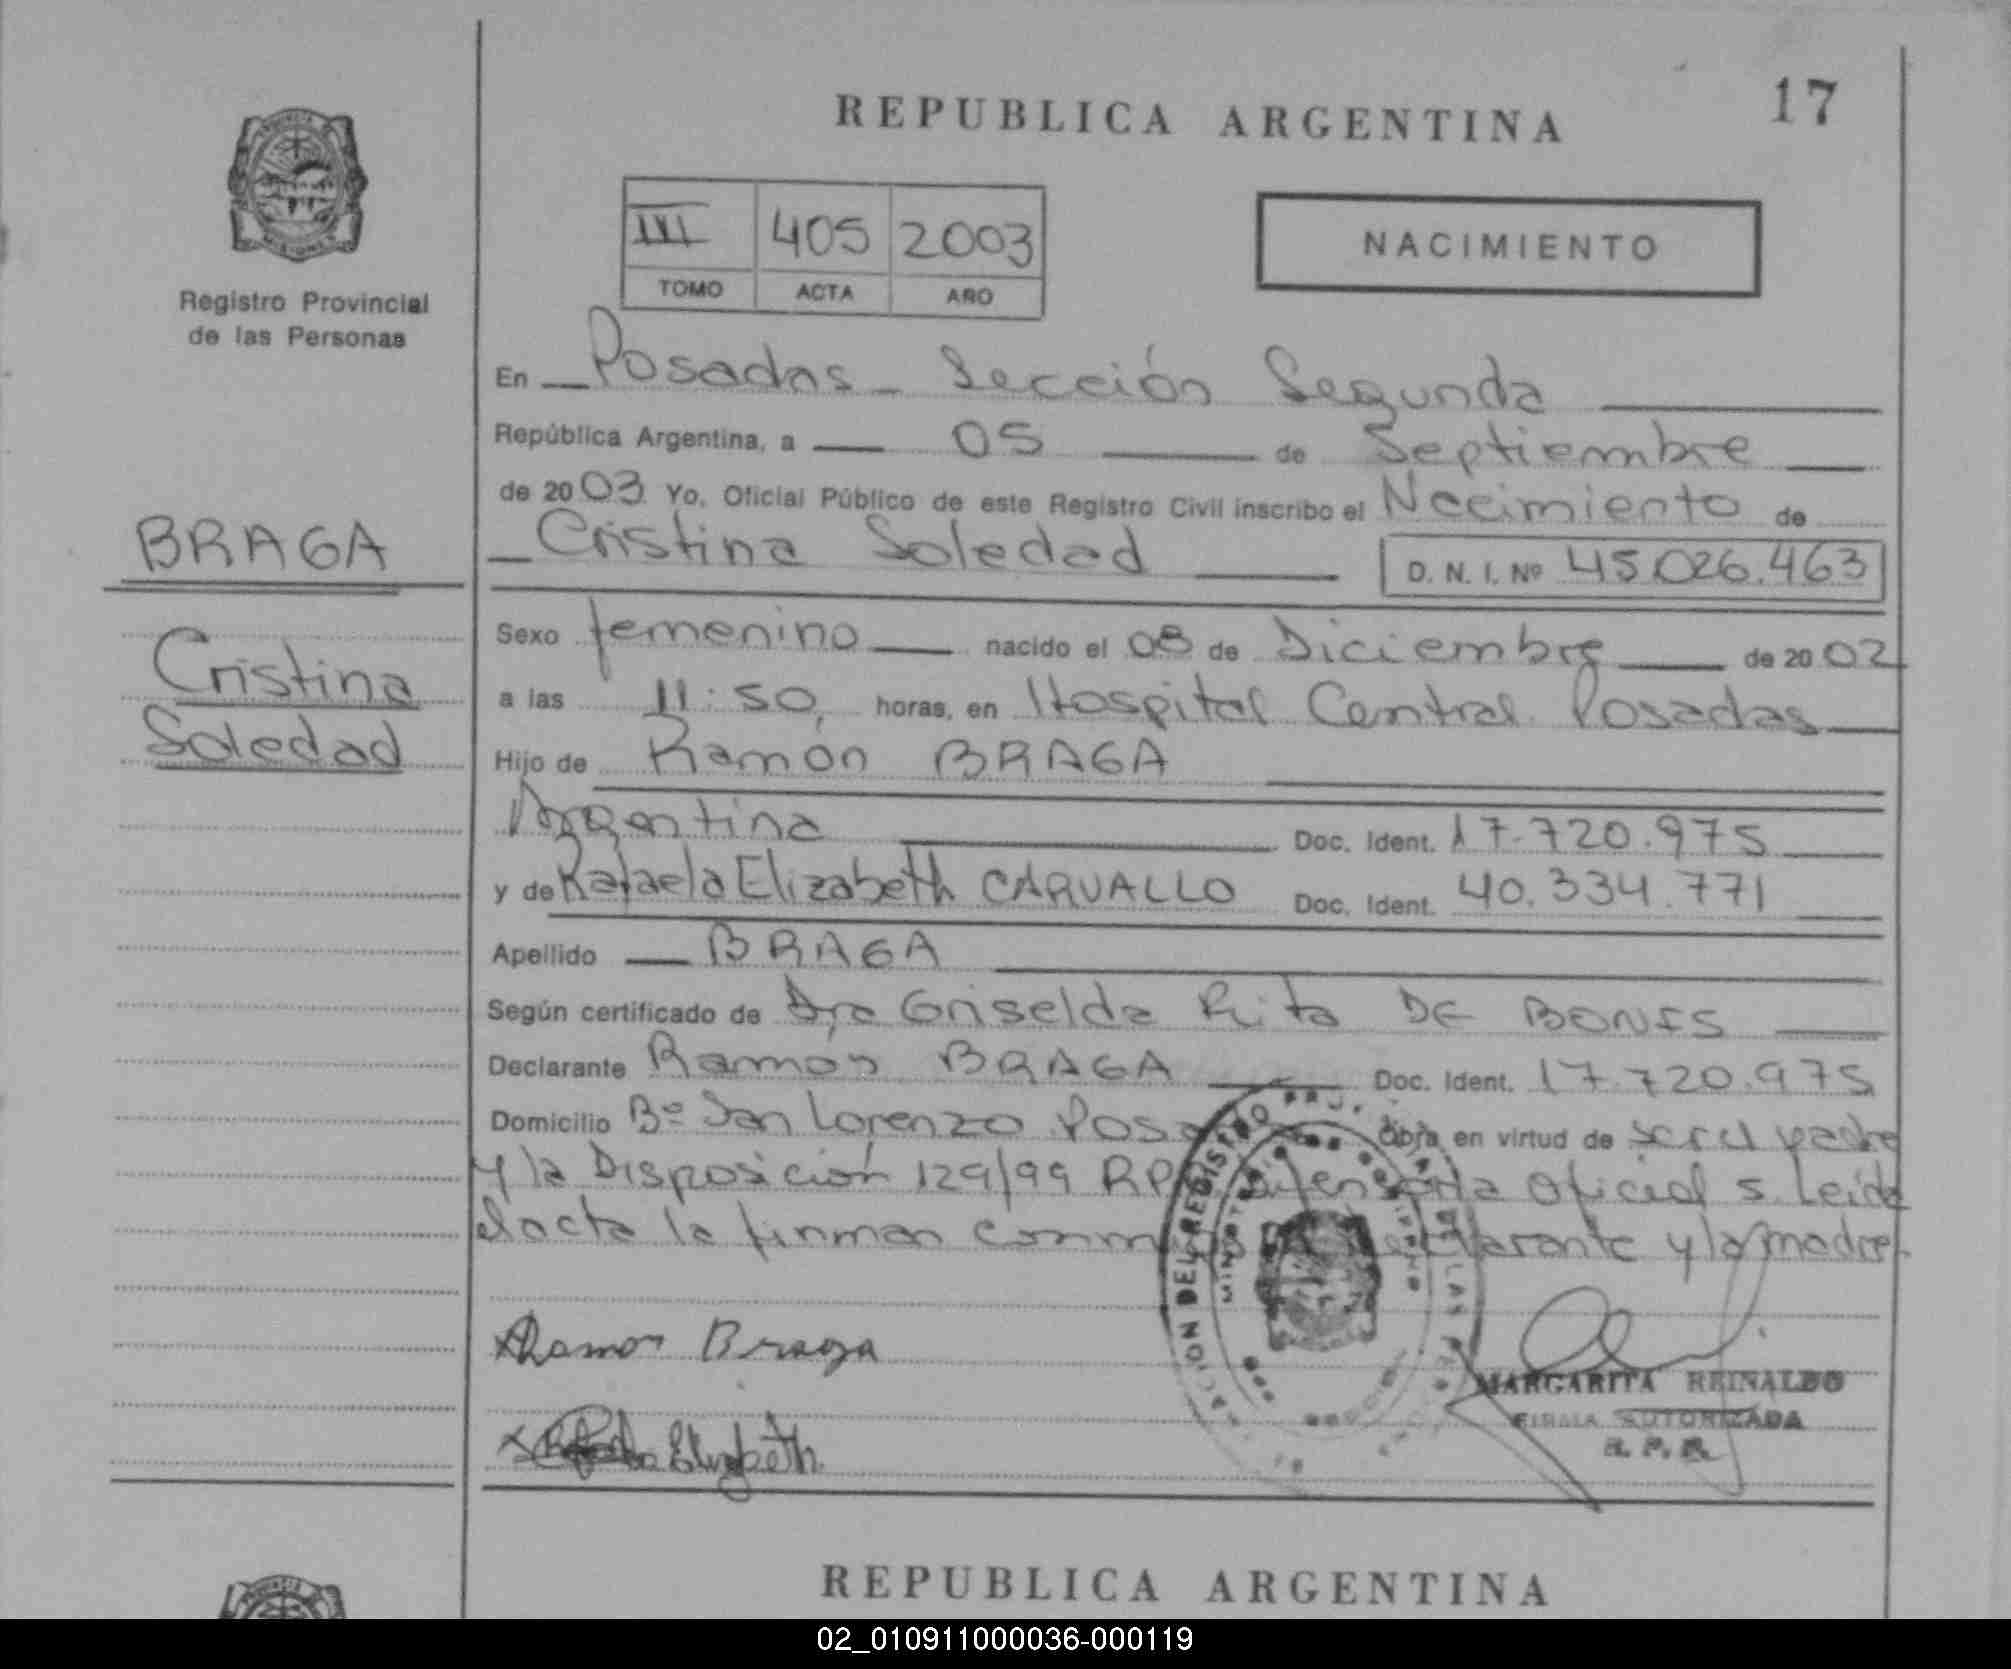 REPUBLICA ARGENTINA
17
III 405 2003
TOMO ACTA AÑO
NACIMIENTO
Registro Provincial
de las Personas
MISIONES
BRAGA
Cristina
Soledad
En Posadas - Sección Segunda
República Argentina, a 05 de Septiembre
de 2003 Yo, Oficial Público de este Registro Civil inscribo el Nacimiento de
Cristina Soledad D. N. I. Nº 45.026.463
Sexo femenino nacido el 08 de Diciembre de 2002
a las 11:50, horas, en Hospital Central Posadas
Hijo de Ramón BRAGA
Argentina Doc. Ident. 17.720.975
y de Rafaela Elizabeth CARVALLO Doc. Ident. 40.334.771
Apellido BRAGA
Según certificado de Dra Griselda Rita DE BONIS
Declarante Ramón BRAGA Doc. Ident. 17.720.975
Domicilio Bº San Lorenzo Obra en virtud de ser el padre
y la Disposición 129/99 Oficial 5. Leída
el acta la firman declarante y la madre
Ramon Braga
Elizabeth
MARGARITA REINALDO
FIRMA AUTORIZADA
R. P. P.
REPUBLICA ARGENTINA
02_010911000036-000119